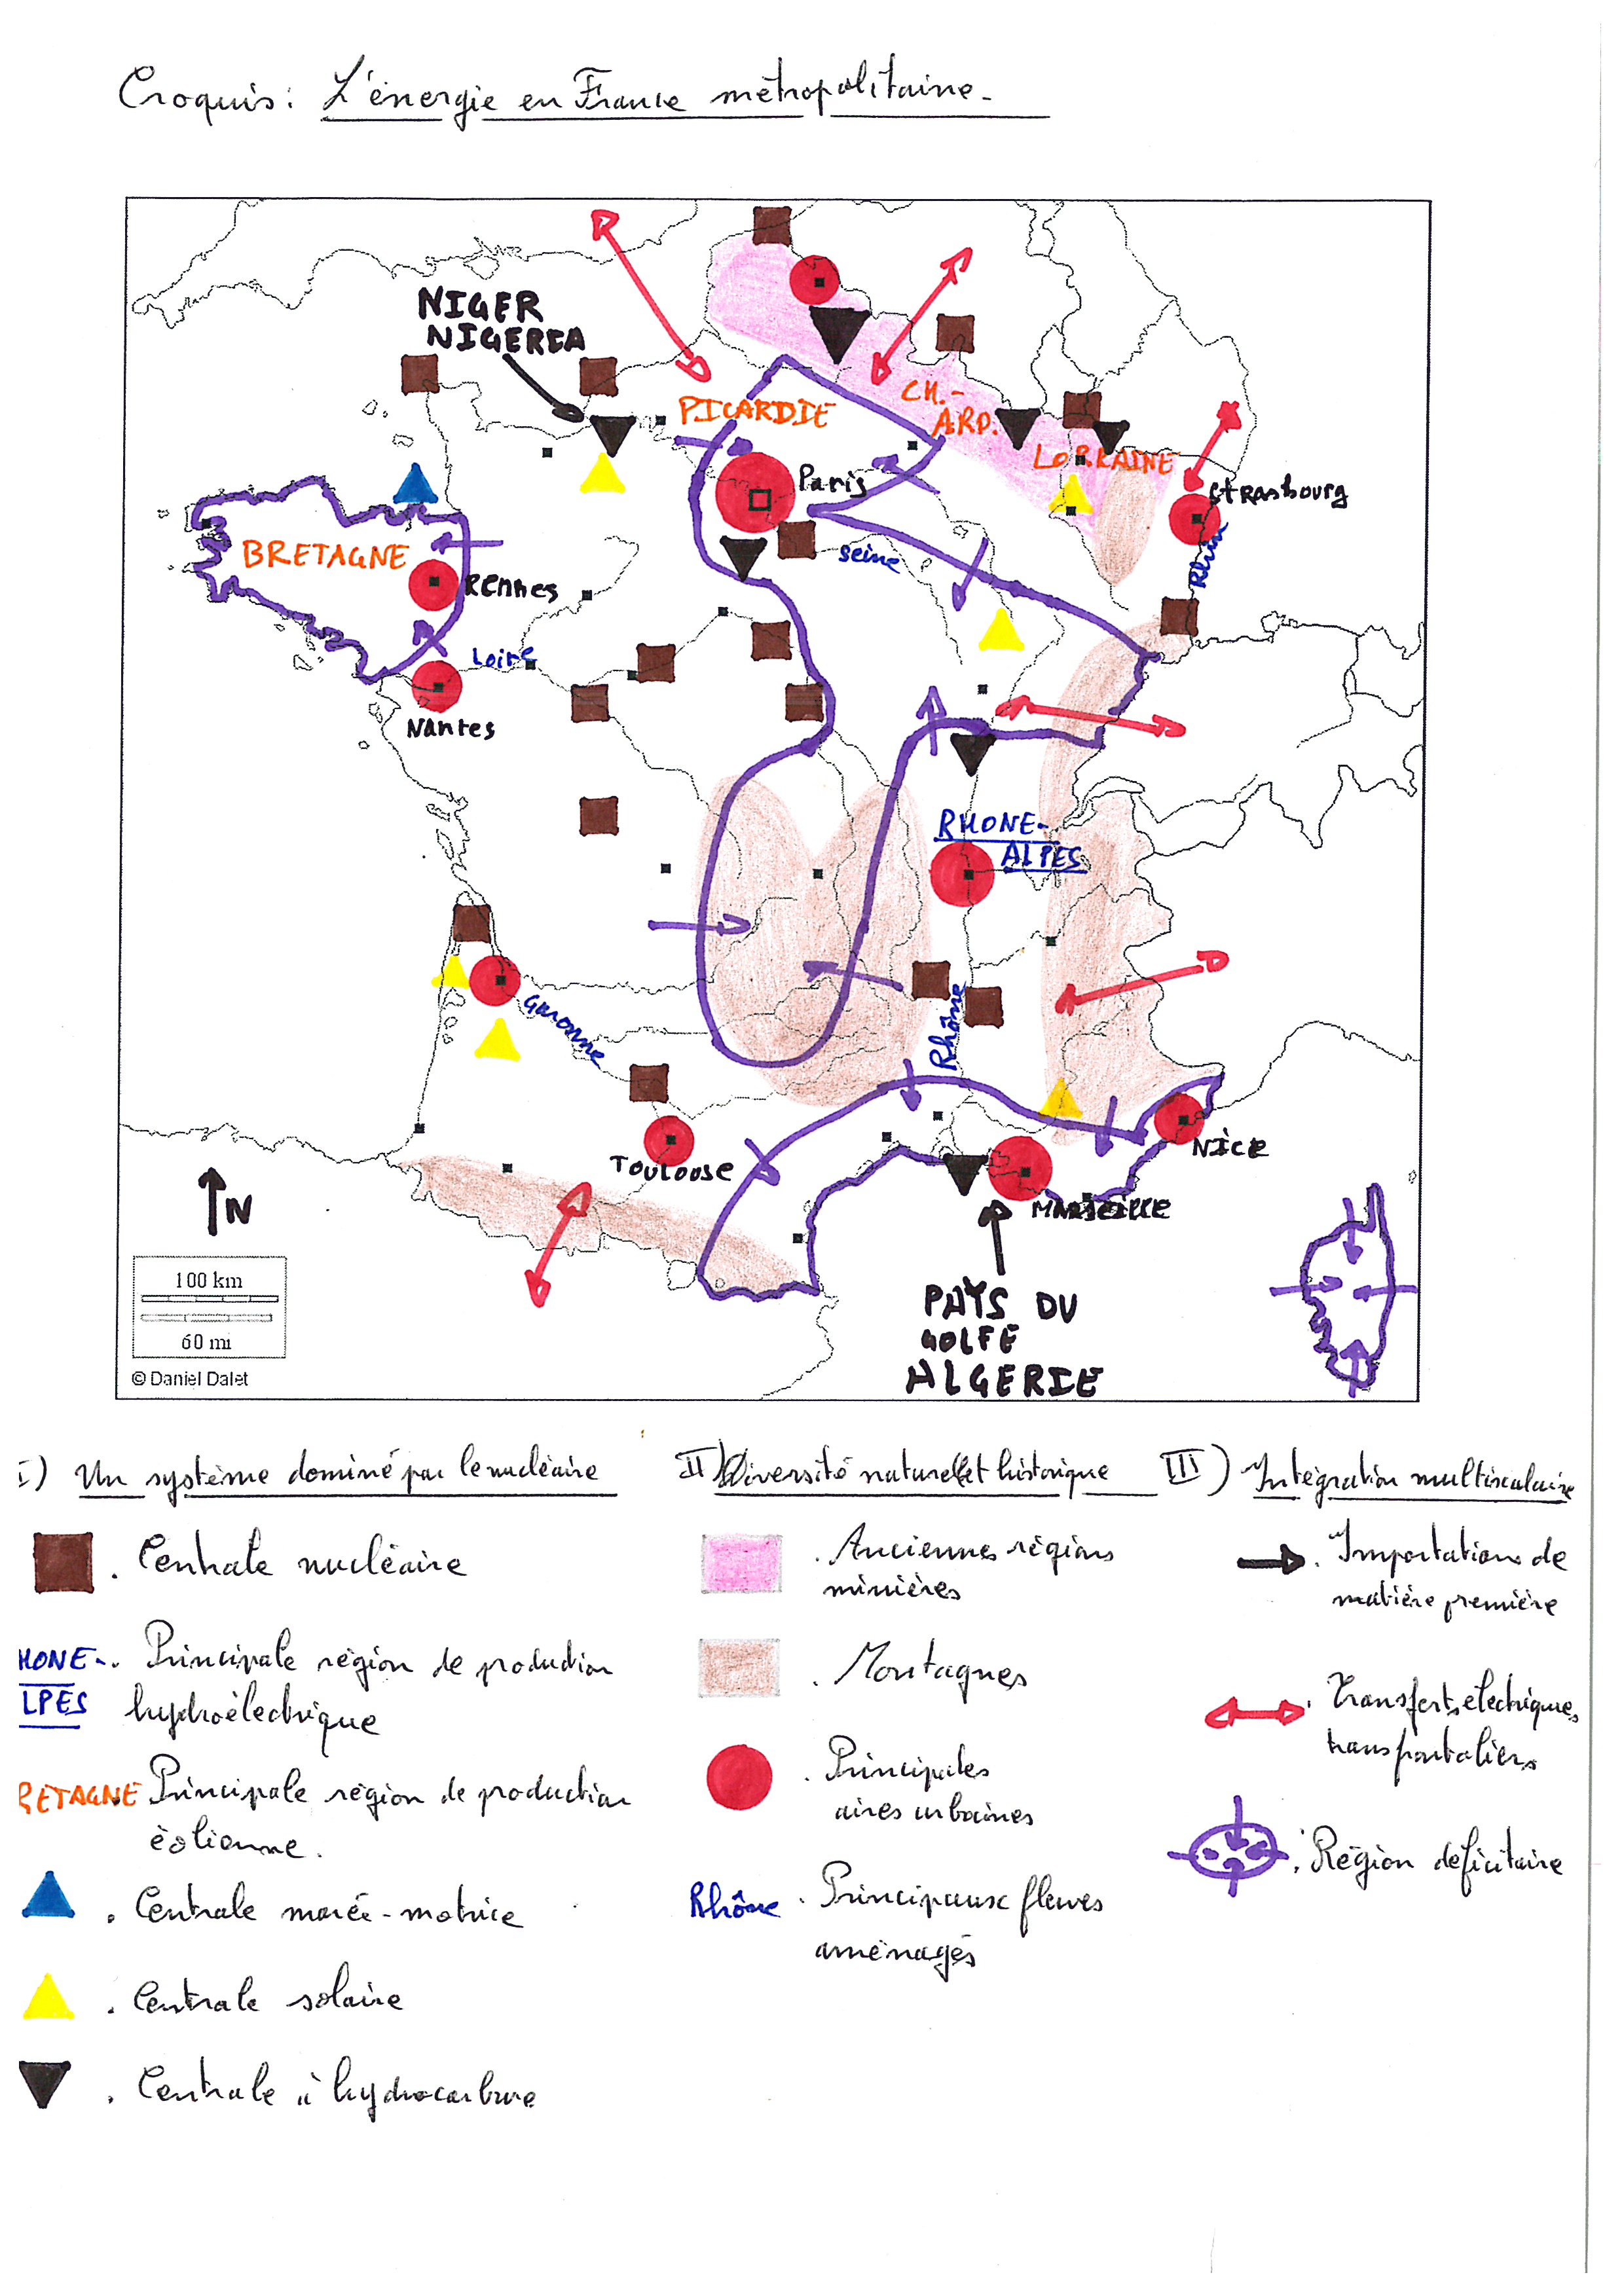 Croquis: L'énergie en France métropolitaine.
NIGER
NIGERIA
PICARDIE
CH.-
ARD.
LORRAINE
Paris
Strasbourg
Rhin
seine
BRETAGNE
RENNES
Loire
Nantes
RHONE-
ALPES
Garonne
Rhône
TOULOUSE
NICE
MARSEILLE
N
100 km
60 mi
© Daniel Dalet
PAYS DU
GOLFE
ALGERIE
I) Un système dominé par le nucléaire
. Centrale nucléaire
HONE-. Principale région de production
LPES hydroélectrique
RETAGNE Principale région de production
éolienne.
. Centrale marée-motrice
. Centrale solaire
. Centrale à hydrocarbure
II) Diversité naturelle et historique
. Anciennes régions
minières
. Montagnes
. Principales
aires urbaines
Rhône . Principaux fleuves
aménagés
III) Intégration multiscalaire
. Importations de
matière première
. Transferts électriques
transfrontaliers
. Région déficitaire